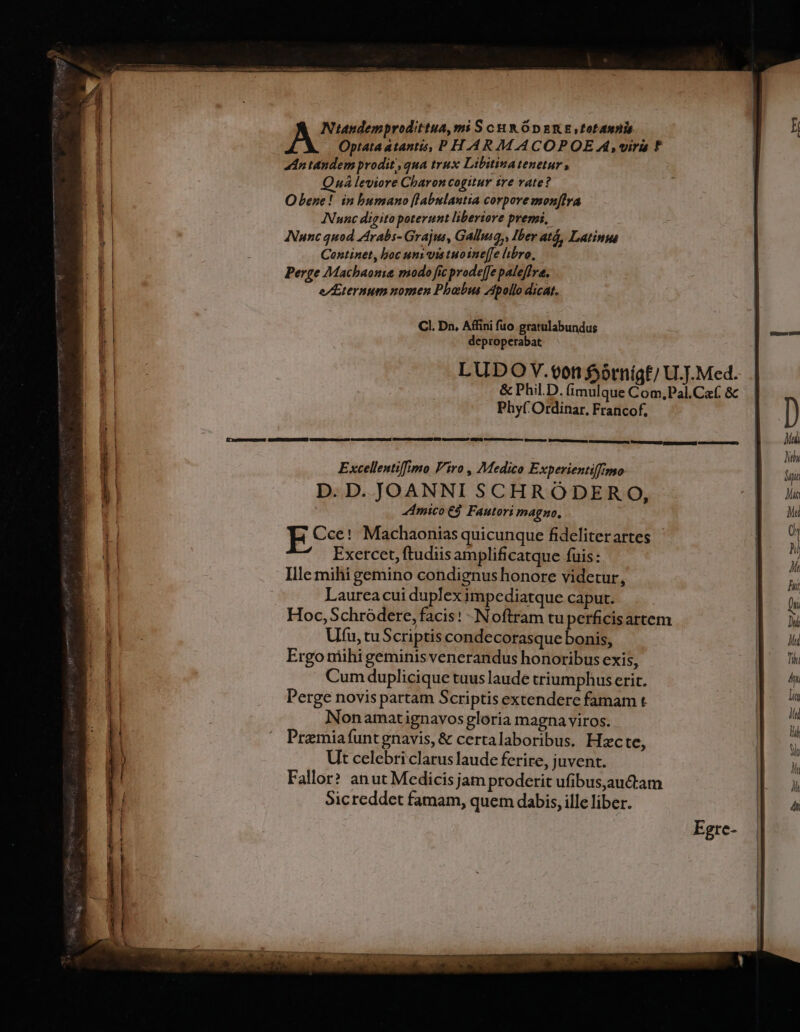 ANtandem prodit tua, mi SCHRÖDERE, tot annis
Optata à tantis, PHARMACOPOEA, viris?
An tandem prodit, qua trux Libitina tenetur,
Quâ leviore Charon cogitur ire rate?
O bene! in humano stabulantia corpore monstra
Nunc digito poterunt liberiore premi,
Nunc quod Arabs-Grajus, Gallusq;, Iber atq́, Latinus
Continet, hoc uni vis tuo inesse libro.
Perge Machaoniæ modo sic prodesse palestræ.
Æternum nomen Phœbus Apollo dicat.
Cl. Dn. Affini suo gratulabundus
deproperabat
LUDOV. von Hörnigk/ U.J. Med.
& Phil. D. simulque Com. Pal. Cæs. &
Phys. Ordinar. Francof.
Excellentissimo Viro, Medico Experientissimo
D. D. JOANNI SCHRÖDERO,
Amico & Fautori magno.
ECce! Machaonias quicunque fideliter artes
Exercet, studiis amplificatque suis:
Ille mihi gemino condignus honore videtur,
Laurea cui duplex impediatque caput.
Hoc, Schrödere, facis! Nostram tu perficis artem
Usu, tu Scriptis condecorasque bonis,
Ergo mihi geminis venerandus honoribus exis,
Cum duplicique tuus laude triumphus erit.
Perge novis partam Scriptis extendere famam:
Non amat ignavos gloria magna viros.
Præmia sunt gnavis, & certa laboribus. Hæc te,
Ut celebri clarus laude ferire, juvent.
Fallor? an ut Medicis jam proderit usibus, auctam
Sic reddet famam, quem dabis, ille liber.
Egre-